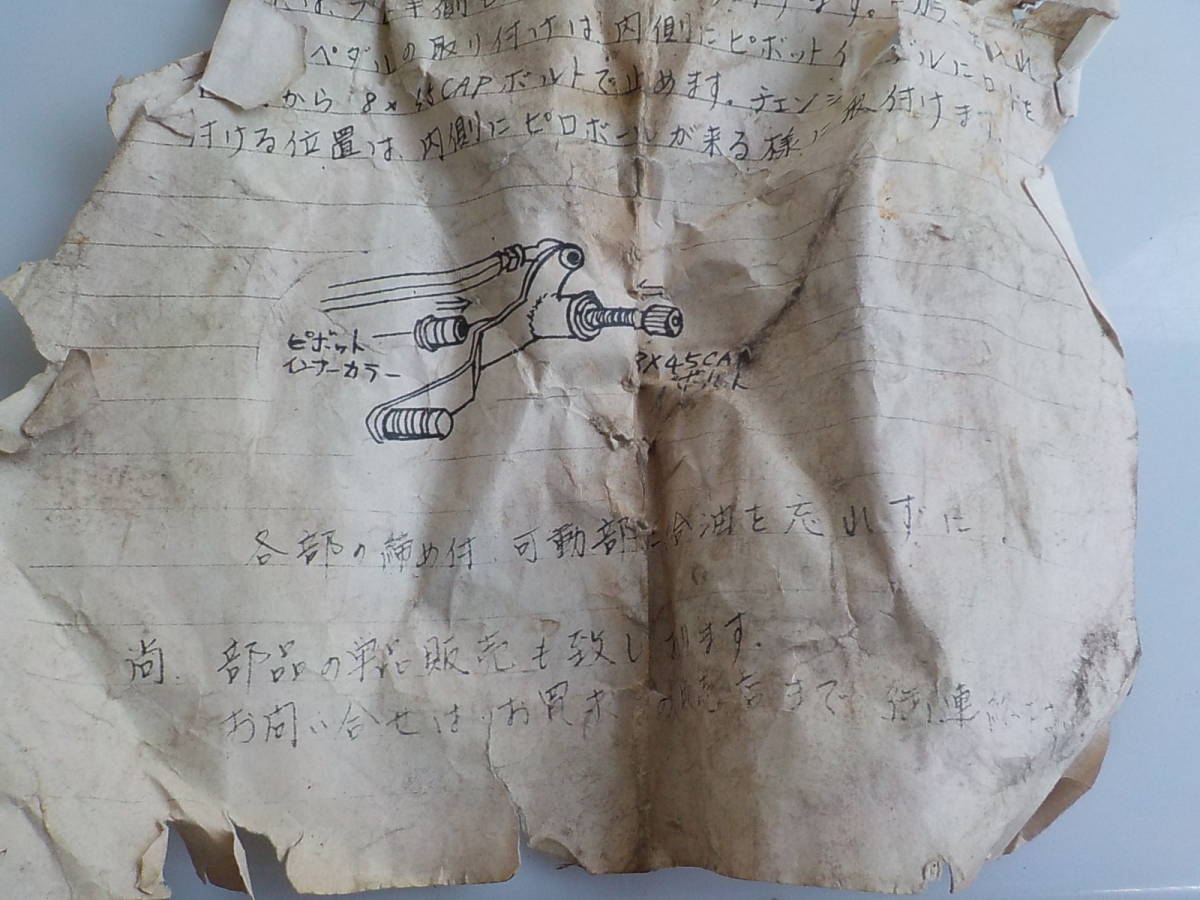 ペダルの取り付けは、内側にピボットイ
から 8×45CAPボルトで止めます。チェンジ
付ける位置は、内側にピロボールが来る様に取付けます
ピボット
インナーカラー
8×45CAP
ボルト
各部の締め付、可動部に給油を忘れずに、
尚、部品の単品販売も致し ります。
お問い合せは、お買求 の販売店まで 御連絡